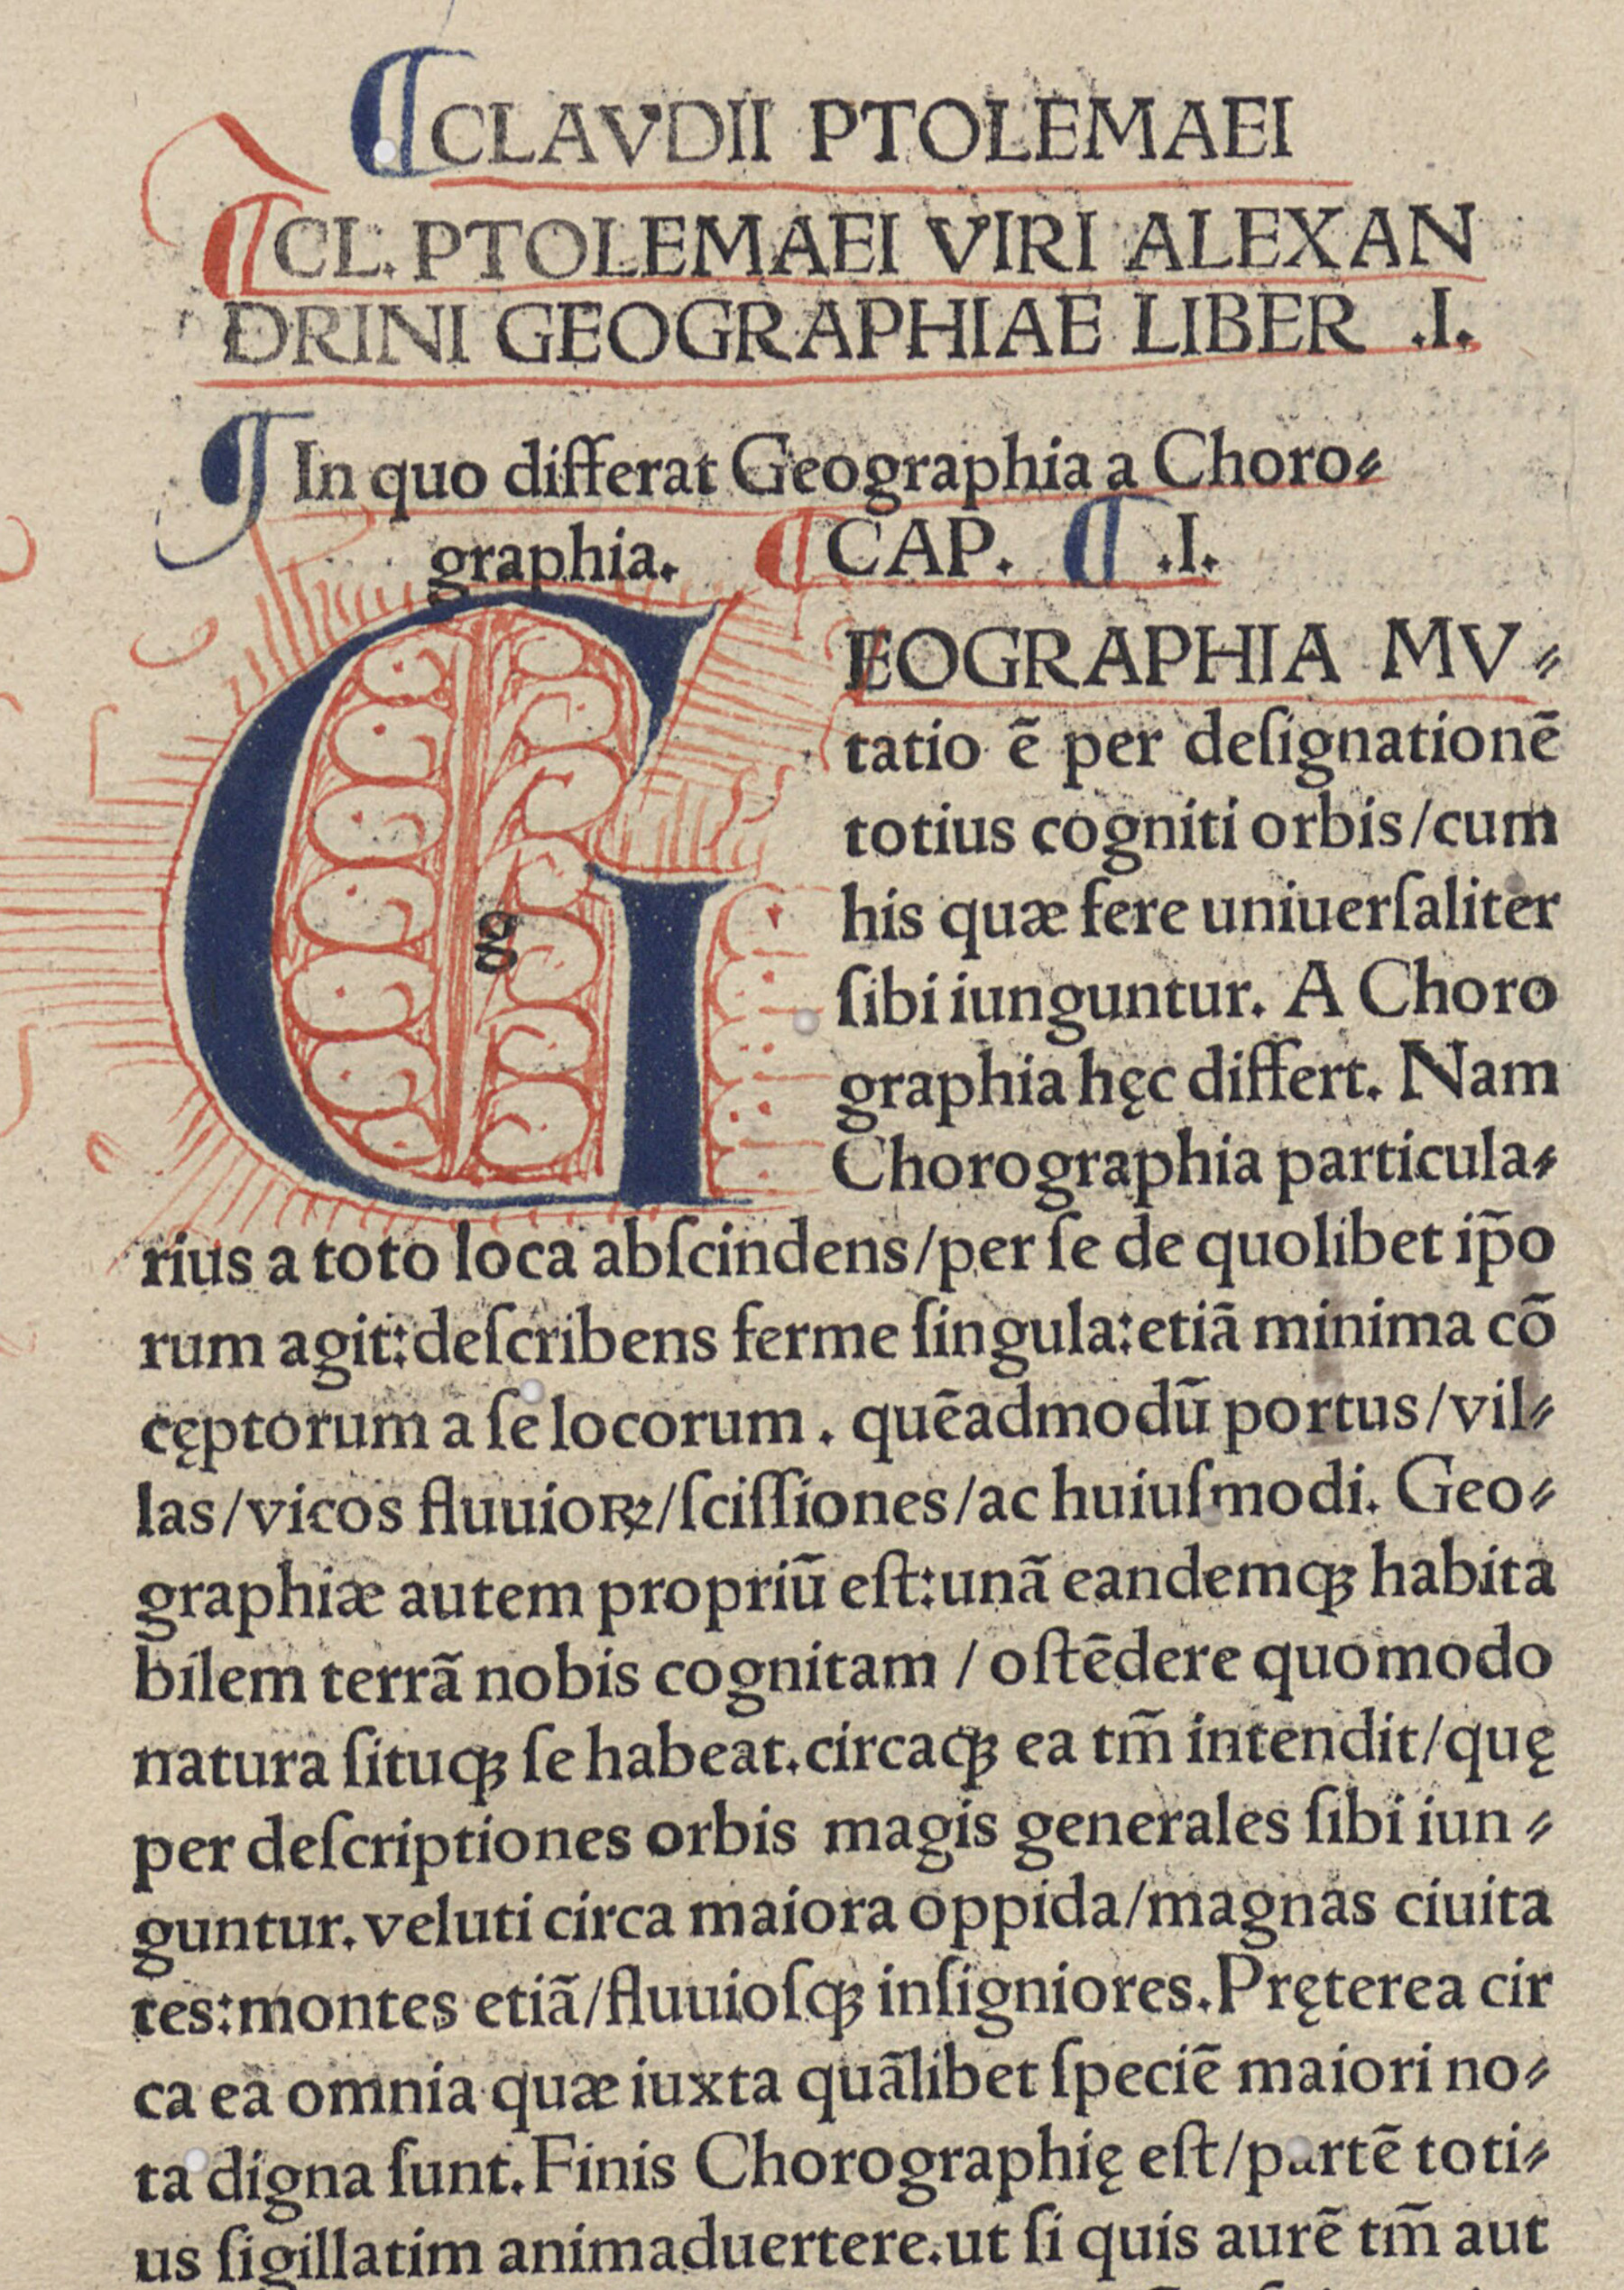 CLAVDII PTOLEMAEI
CL. PTOLEMAEI VIRI ALEXAN
DRINI GEOGRAPHIAE LIBER .I.
In quo differat Geographia a Choro⸗
graphia. CAP. .I.
g
EOGRAPHIA MV⸗
tatio ē per deſignationē
totius cogniti orbis/cum
his quæ fere uniuerſaliter
ſibi iunguntur. A Choro
graphia hęc differt. Nam
Chorographia particula⸗
rius a toto loca abſcindens/per ſe de quolibet ip̄o
rum agit:deſcribens ferme ſingula:etiā minima cō
cęptorum a ſe locorum. quēadmodū portus/vil⸗
las/vicos fluuioꝝ/ſciſſiones/ac huiuſmodi. Geo⸗
graphiæ autem propriū eſt:unā eandemqꝫ habita
bilem terrā nobis cognitam / oſtēdere quomodo
natura ſituqꝫ ſe habeat.circaqꝫ ea tm̄ intendit/quę
per deſcriptiones orbis magis generales ſibi iun⸗
guntur.veluti circa maiora oppida/magnas ciuita
tes:montes etiā/fluuioſqꝫ inſigniores.Pręterea cir
ca ea omnia quæ iuxta quālibet ſpeciē maiori no⸗
ta digna ſunt.Finis Chorographię eſt/partē toti⸗
us ſigillatim animaduertere.ut ſi quis aurē tm̄ aut